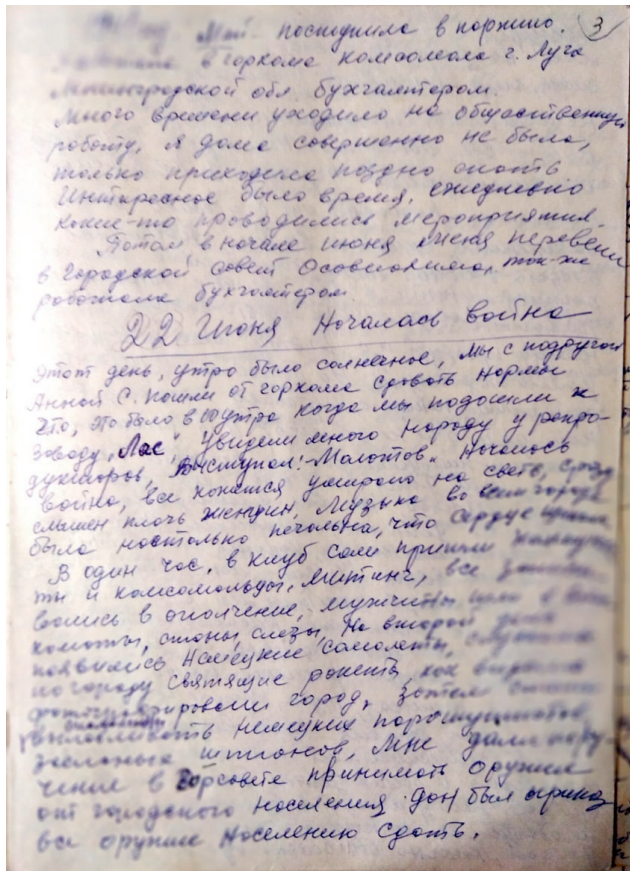 3
Май поступила в партию.
горкома комсомола г. Луга
Ленинградской обл. бухгалтером.
Много времени уходило на общественную
работу, я дома совершенно не была,
только приходила поздно спать
Интересное было время, ежедневно
какие-то проводились мероприятия
Потом в начале июня меня перевели
в Городской совет Осоавиахима, так-же
работала бухгалтером
22 Июня Началась война
Этот день, утро было солнечное, мы с подругой
Анной С. пошли от горкома сдавать нормы
ГТО, это было в 10 утра когда мы подошли к
заводу „Лас", увидели много народу у репро-
дукторов, Выступал!-Молотов" Началось
война, все кончится умирало на свете, сразу
слышен плач женщин, Музыка во всем городе
была настолько печальна, что сердце
В один час, в клуб сами пришли
ты и комсомольцы, митинг, все
вались в ополчение, мужчины шли в
коматы, стоны, слезы, На второй день
появились Немецкие самолеты,
по городу святящие ракеты, как
город, затем
вылавливать немецких парашутистов,
засланных шпионов, Мне дали пору-
чение в Горсовете принимать оружие
от городского населения. Дан был приказ
все оружие Населению сдать.